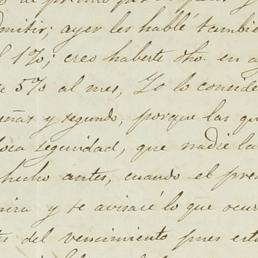 admitir; ayer les hablé tambié
l 1%; creo haberte dho. en a
e 5% al mes, Yo lo conside
y segundo, porque las qu
oca seguridad, que nadie la
hecho antes, cuando el pre
mira y te avisaré lo que ocur
es del vencimiento pues est